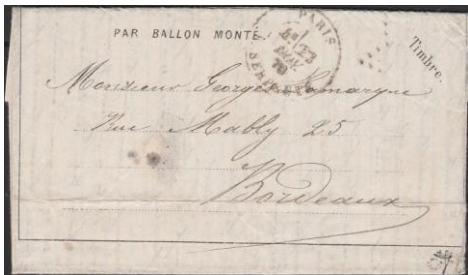 PAR BALLON MONTÉ.
PARIS
23
70
Timbre.
Monsieur Georges Lamarque
Rue Mably 25
Bordeaux